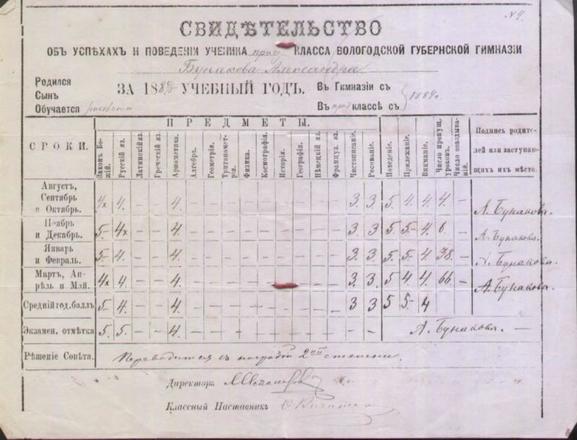 № 9.
СВИДѢТЕЛЬСТВО
ОБЪ УСПѢХАХЪ И ПОВЕДЕНІИ УЧЕНИКА КЛАССА ВОЛОГОДСКОЙ ГУБЕРНСКОЙ ГИМНАЗІИ
Бунакова Александра
Родился
Сынъ
Обучается
ЗА 188 УЧЕБНЫЙ ГОДЪ.
Въ Гимназіи съ
Въ классѣ съ
1889.
ПРЕДМЕТЫ.
СРОКИ. Законъ Божій. Русскій яз. Латинскій яз. Греческій яз. Ариѳметика. Алгебра. Геометрія. Тригонометрія. Физика. Космографія. Исторія. Географія. Нѣмецкій яз. Француз. яз. Чистописаніе. Рисованіе. Поведеніе. Прилежаніе. Вниманіе. Число пропущ. уроковъ. Подпись родителей или заступающихъ ихъ мѣсто.
Августъ, Сентябрь и Октябрь. 4х 4. – – 4. – – – – – – – – – 3. 3. 5. 4. 4. 4. – А. Бунакова.
Ноябрь и Декабрь. 5. 4х – – 4. – – – – – – – – – 3 3. 5. 5. 4. 6. – А. Бунакова.
Январь и Февраль. 5. 4. – – 4. – – – – – – – – – 3. 3. 5. 5. 4. 38. – А. Бунакова
Мартъ, Апрѣль и Май. 4х 4 – – 4. – – – – – – – – – 3. 3. 5. 4. 4. 66. – А. Бунакова.
Средній год. баллъ 5. 4. – – 4. – – – – – – – – – 3 3 5. 5. 4
Экзамен. отмѣтка 5. 5. – – 4. – – – – – – – – – – – А. Бунакова. –
Рѣшеніе Совѣта. Переводится съ наградой 2ой степени.
Директоръ
Классный Наставникъ